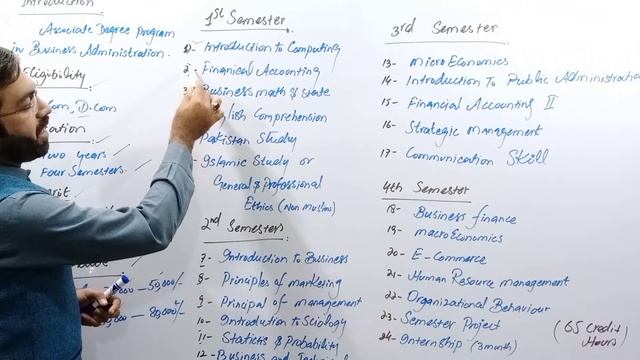 Introduction
Associate Degree Program
in Business Administration.
Eligibility
Com, D.com
Two years
Four Semesters.
50,000/-
80,000/-
1st Semester
1- Introduction to Computing
2- Finanical Accounting
3- Business math & state
English Comprehension
Pakistan Study
Islamic Study or
General & Professional
Ethics (Non Muslims)
2nd Semesters
7- Introduction to Business
8- Principles of marketing
9- Principal of management
10- Introduction to Sciology
11- Staticrs & Probability
12- Business and
3rd Semester
13- micro Economics
14- Introduction To Public Administration
15- Financial Accounting II
16- Strategic Management
17- Communication Skill
4th Semester
18- Business finance
19- macroEconomics
20- E-Commerce
21- Human Resource management
22- Organizational Behaviour
23- Semester Project
24- Internship (3 month)
(65 Credit
Hours)